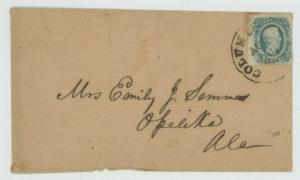 COLUM
Mrs Emily J. Semmes
Opelika
Ala